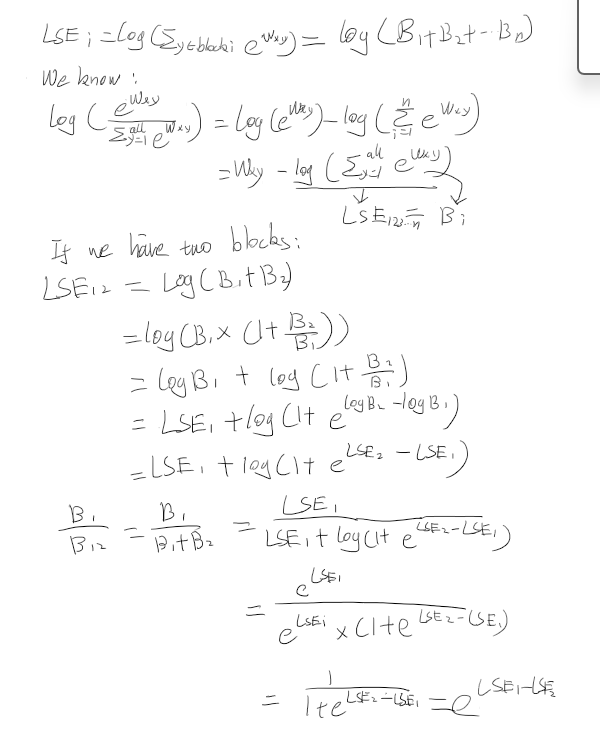 LSEᵢ = log(Σ_{y∈blocki} e^{Wxy}) = log(B₁+B₂+-- Bn)
We know :
log ( e^{Wxy} / Σ_{y=1}^{all} e^{Wxy} ) = log(e^{Wxy}) - log( Σ_{i=1}^{n} e^{Wxy} )
= Wxy - log ( Σ_{y=1}^{all} e^{Wxy} )
LSE₁₂₃...n = Bᵢ
If we have two blocks:
LSE₁₂ = Log(B₁+B₂)
= log(B₁ × (1+ B₂/B₁))
= logB₁ + log(1+ B₂/B₁)
= LSE₁ + log(1+ e^{logB₂ - logB₁})
= LSE₁ + log(1+ e^{LSE₂ - LSE₁})
B₁/B₁₂ = B₁/(B₁+B₂) = LSE₁ / (LSE₁ + log(1+ e^{LSE₂-LSE₁}))
= e^{LSE₁} / (e^{LSEᵢ} × (1+e^{LSE₂-LSE₁}))
= 1 / (1+e^{LSE₂-LSE₁}) = e^{LSE₁-LSE₂}